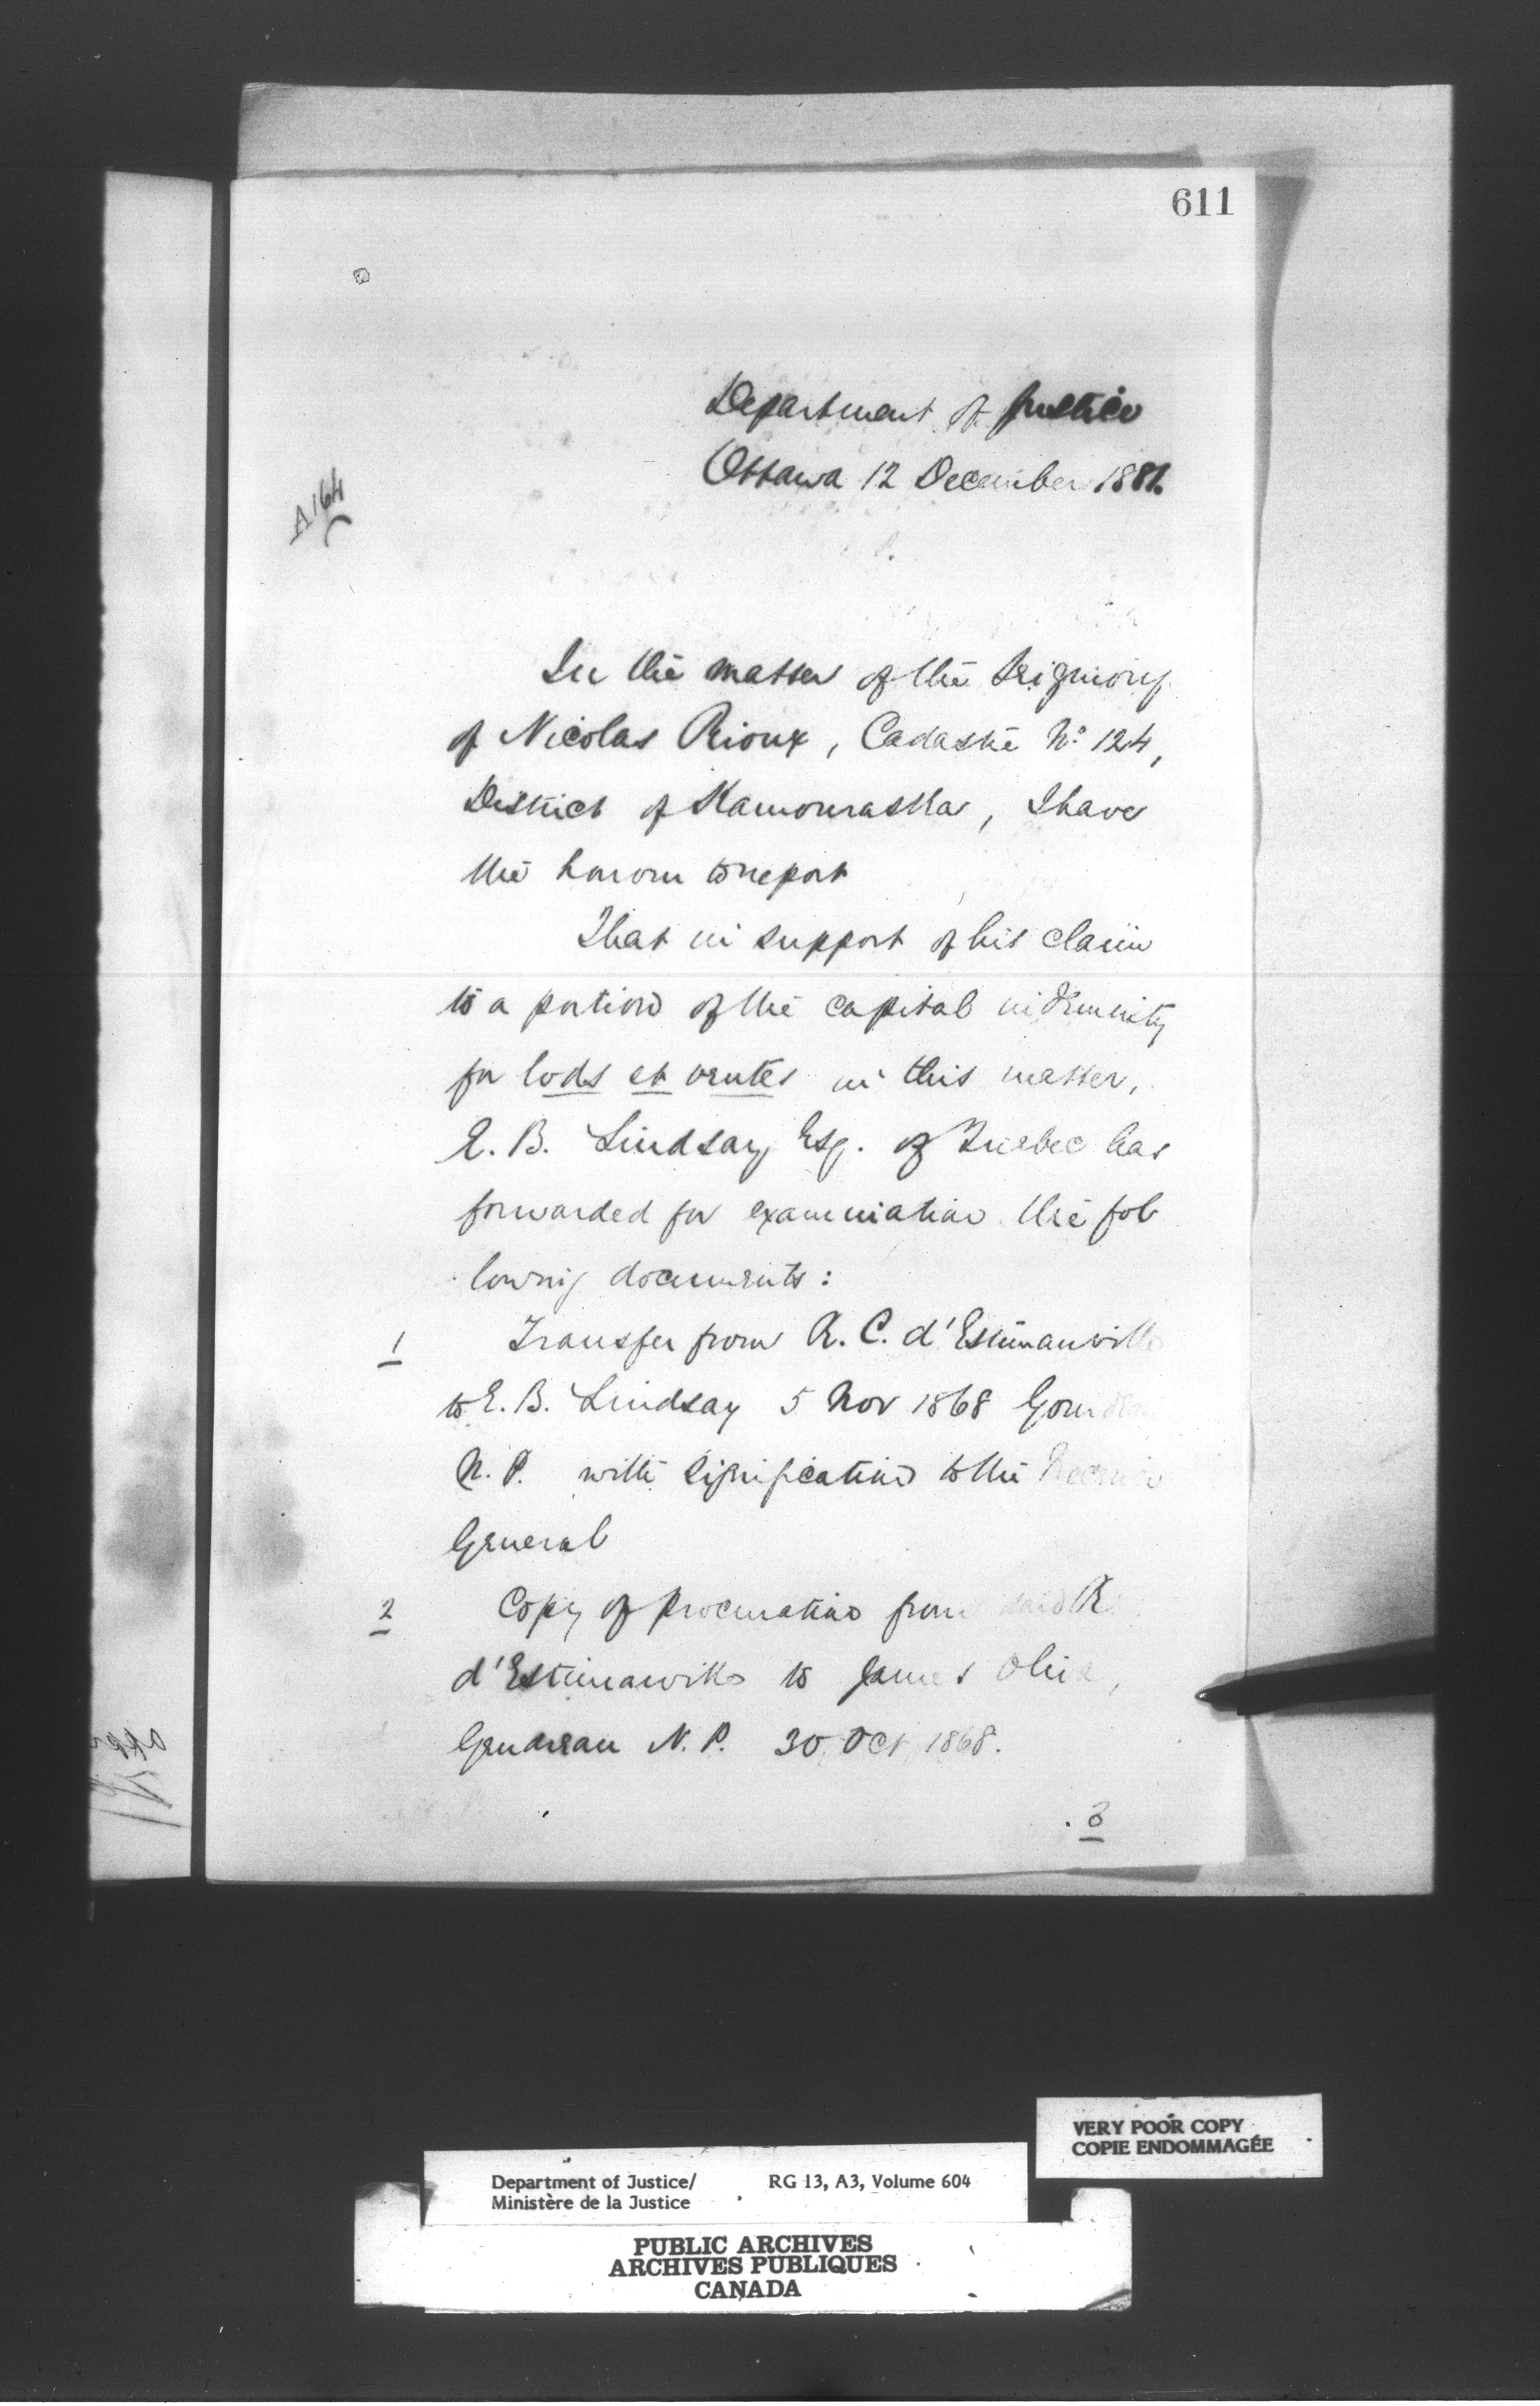 611
A 164
Department of Justice
Ottawa 12 December 1881.
In the matter of the Seigniory
of Nicolas Rioux, Cadastre No. 124,
District of Kamouraska, I have
the honour to report
That in support of his claim
to a portion of the capital indemnity
for lods et ventes in this matter,
E. B. Lindsay Esq. of Quebec has
forwarded for examination the fol
lowing documents:
1 Transfer from R. C. d'Estimauville
to E. B. Lindsay 5 Nov 1868
N. P. with signification to the Receiver
General
2 Copy of procuration from said R.
d'Estimauville to James
N. P. 30 Oct 1868.
3
VERY POOR COPY
COPIE ENDOMMAGÉE
Department of Justice/ RG 13, A3, Volume 604
Ministère de la Justice
PUBLIC ARCHIVES
ARCHIVES PUBLIQUES
CANADA